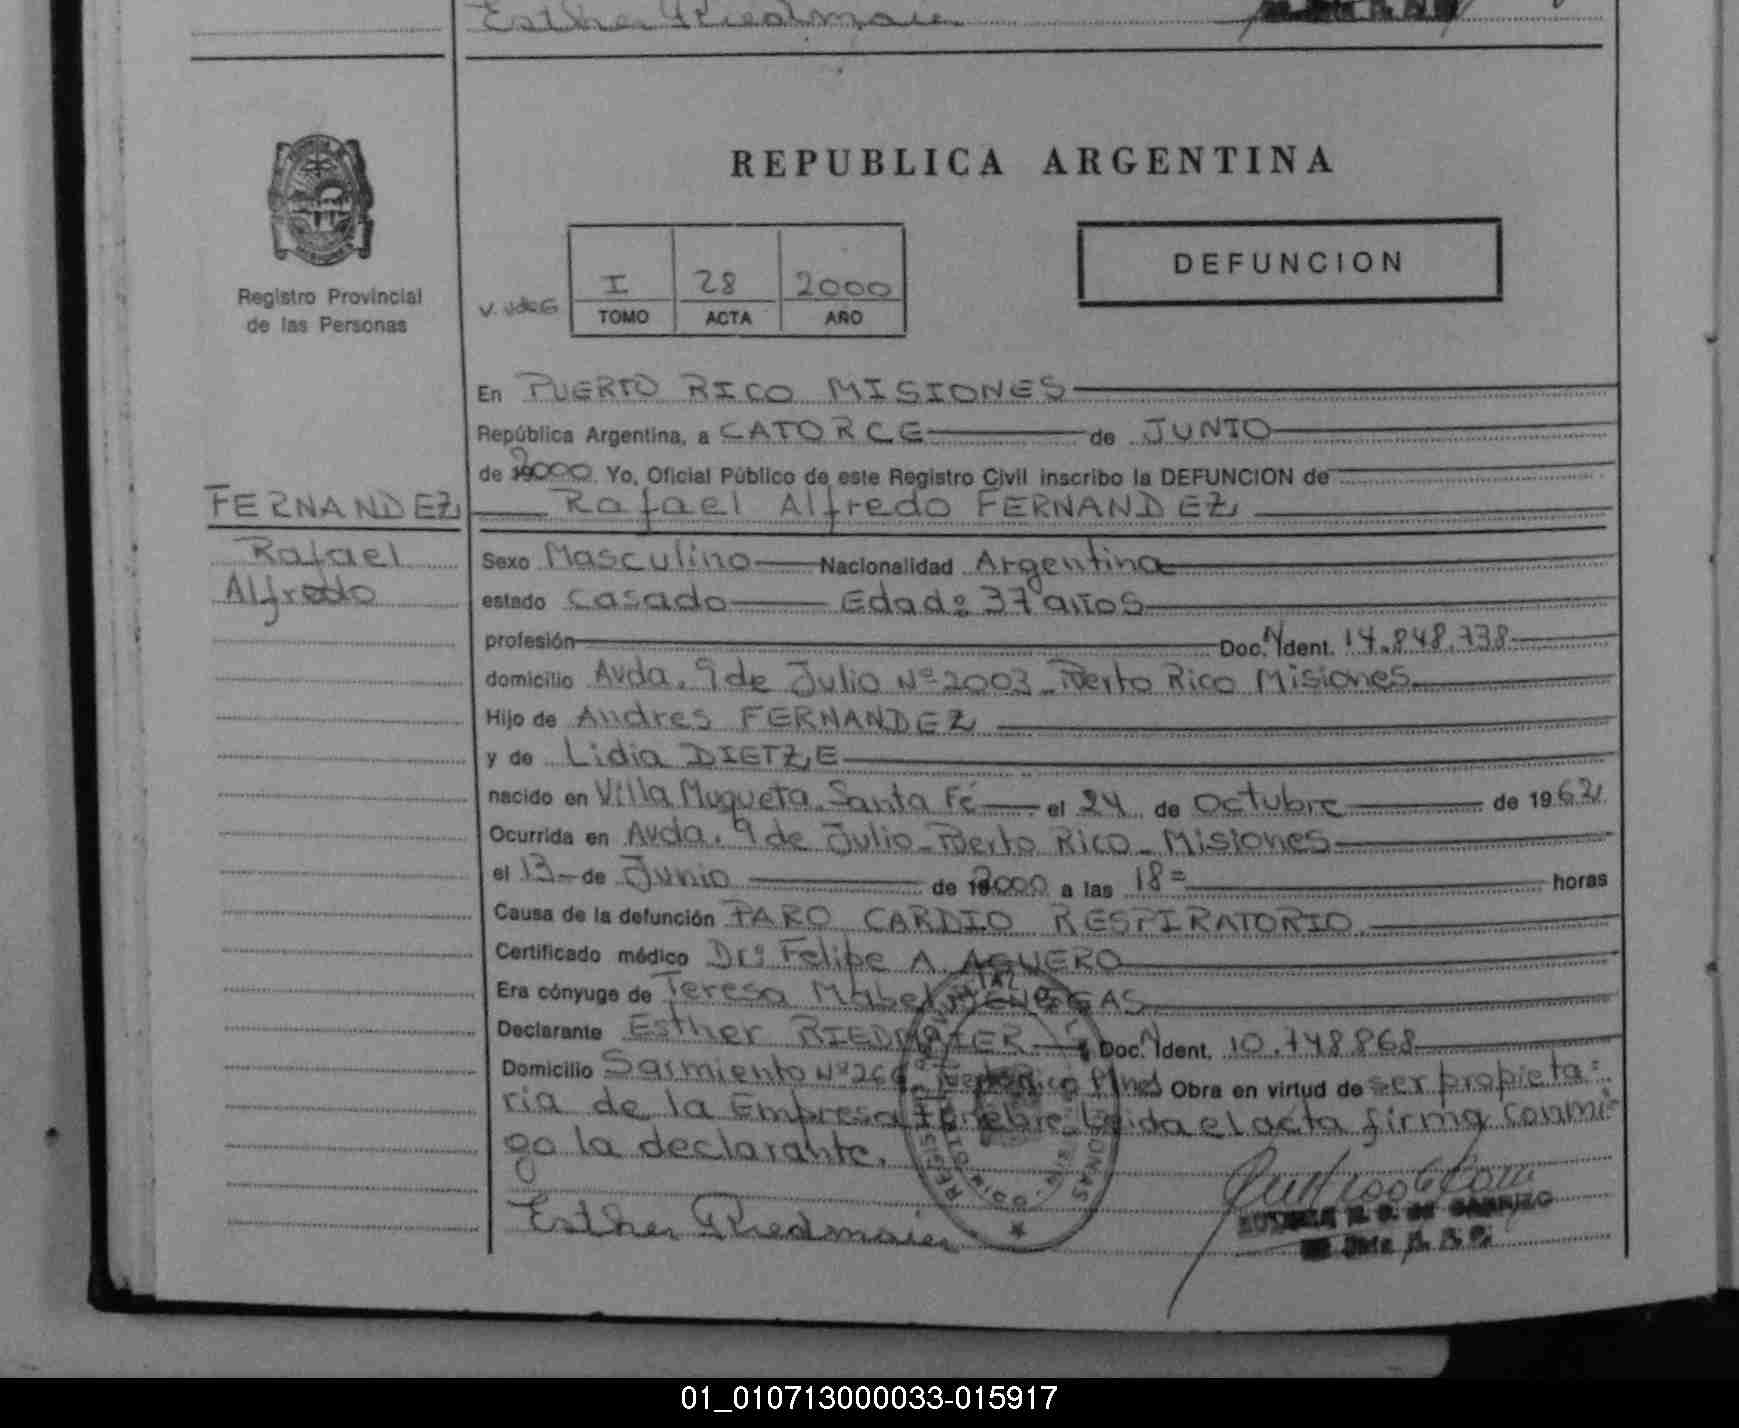 Esther Riedmaier
REPUBLICA ARGENTINA
DEFUNCION
Registro Provincial
de las Personas
I 28 2000
TOMO ACTA AÑO
En PUERTO RICO MISIONES
República Argentina, a CATORCE de JUNIO
de 2000. Yo, Oficial Público de este Registro Civil inscribo la DEFUNCION de
FERNANDEZ
Rafael
Alfredo
Rafael Alfredo FERNANDEZ
Sexo Masculino Nacionalidad Argentina
estado casado Edad: 37 años
profesión Doc. N Ident. 14.848.738
domicilio Avda. 9 de Julio Nº 2003 - Puerto Rico Misiones
Hijo de Andres FERNANDEZ
y de Lidia DIETZE
nacido en Villa Mugueta Santa Fé el 24 de Octubre de 1962
Ocurrida en Avda. 9 de Julio - Puerto Rico - Misiones
el 13 de Junio de 2000 a las 18= horas
Causa de la defunción PARO CARDIO RESPIRATORIO
Certificado médico Dr: Felipe A. AGUERO
Era cónyuge de Teresa Mabel VENEGAS
Declarante Esther RIEDMAIER Doc. N Ident. 10.748868
Domicilio Sarmiento Nº Puerto Rico Mnes Obra en virtud de ser propieta=
ria de la Empresa Fúnebre. Leida el acta firma conmi=
go la declarante.
Esther Riedmaier
01_010713000033-015917